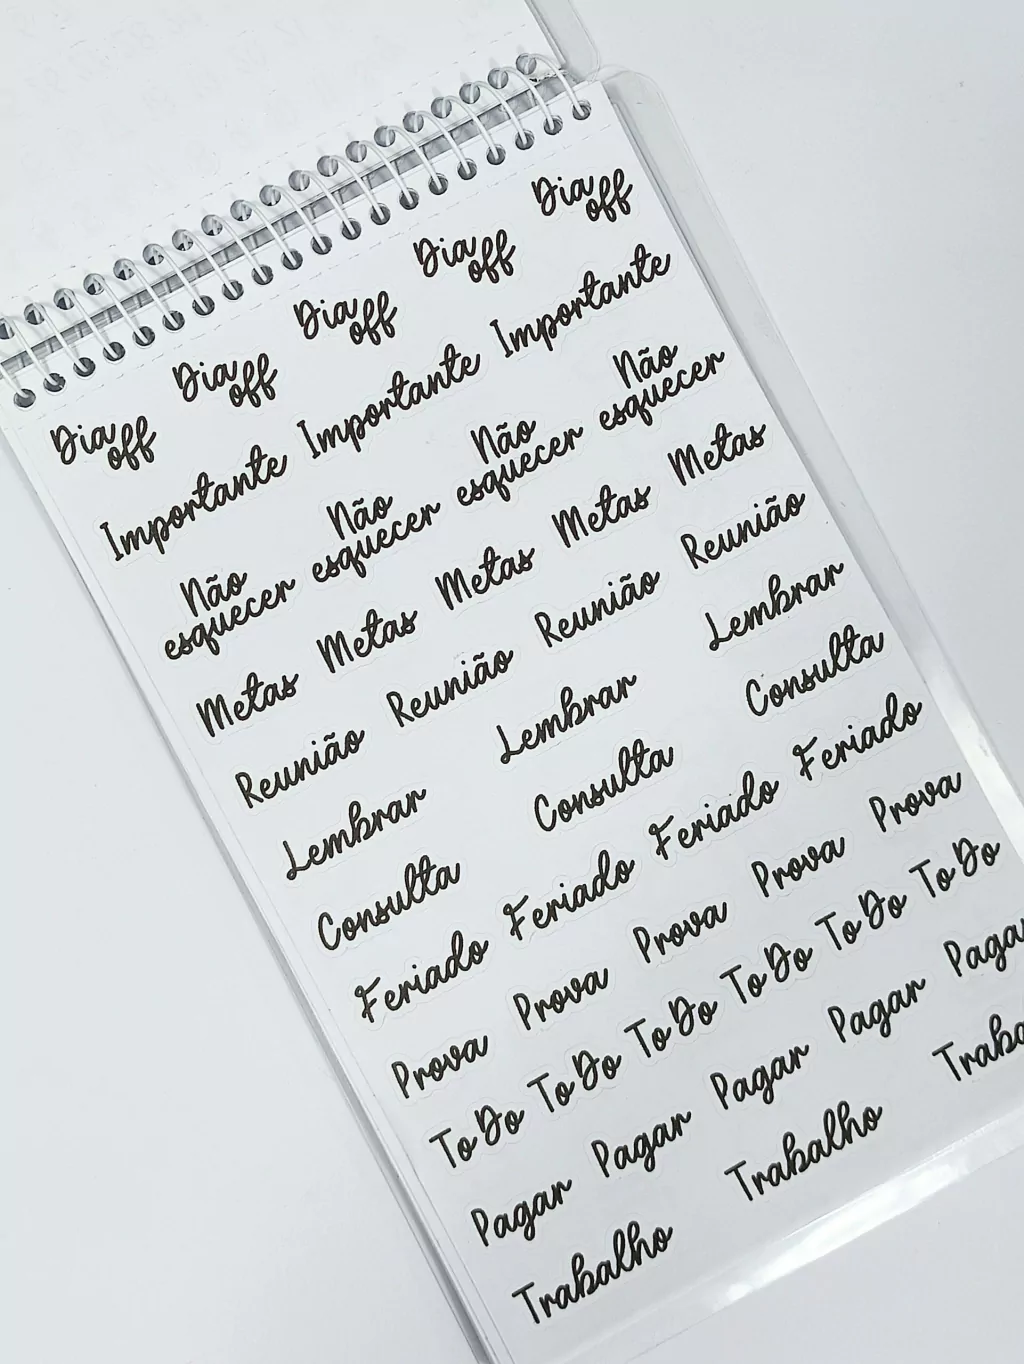 Dia off Dia off Dia off Dia off Dia off
Importante Importante Importante
Não esquecer Não esquecer Não esquecer Não esquecer
Metas Metas Metas Metas Metas
Reunião Reunião Reunião Reunião
Lembrar Lembrar Lembrar
Consulta Consulta Consulta
Feriado Feriado Feriado Feriado
Prova Prova Prova Prova Prova
To Do To Do To Do To Do To Do To Do
Pagar Pagar Pagar Pagar Paga
Trabalho Trabalho Traba